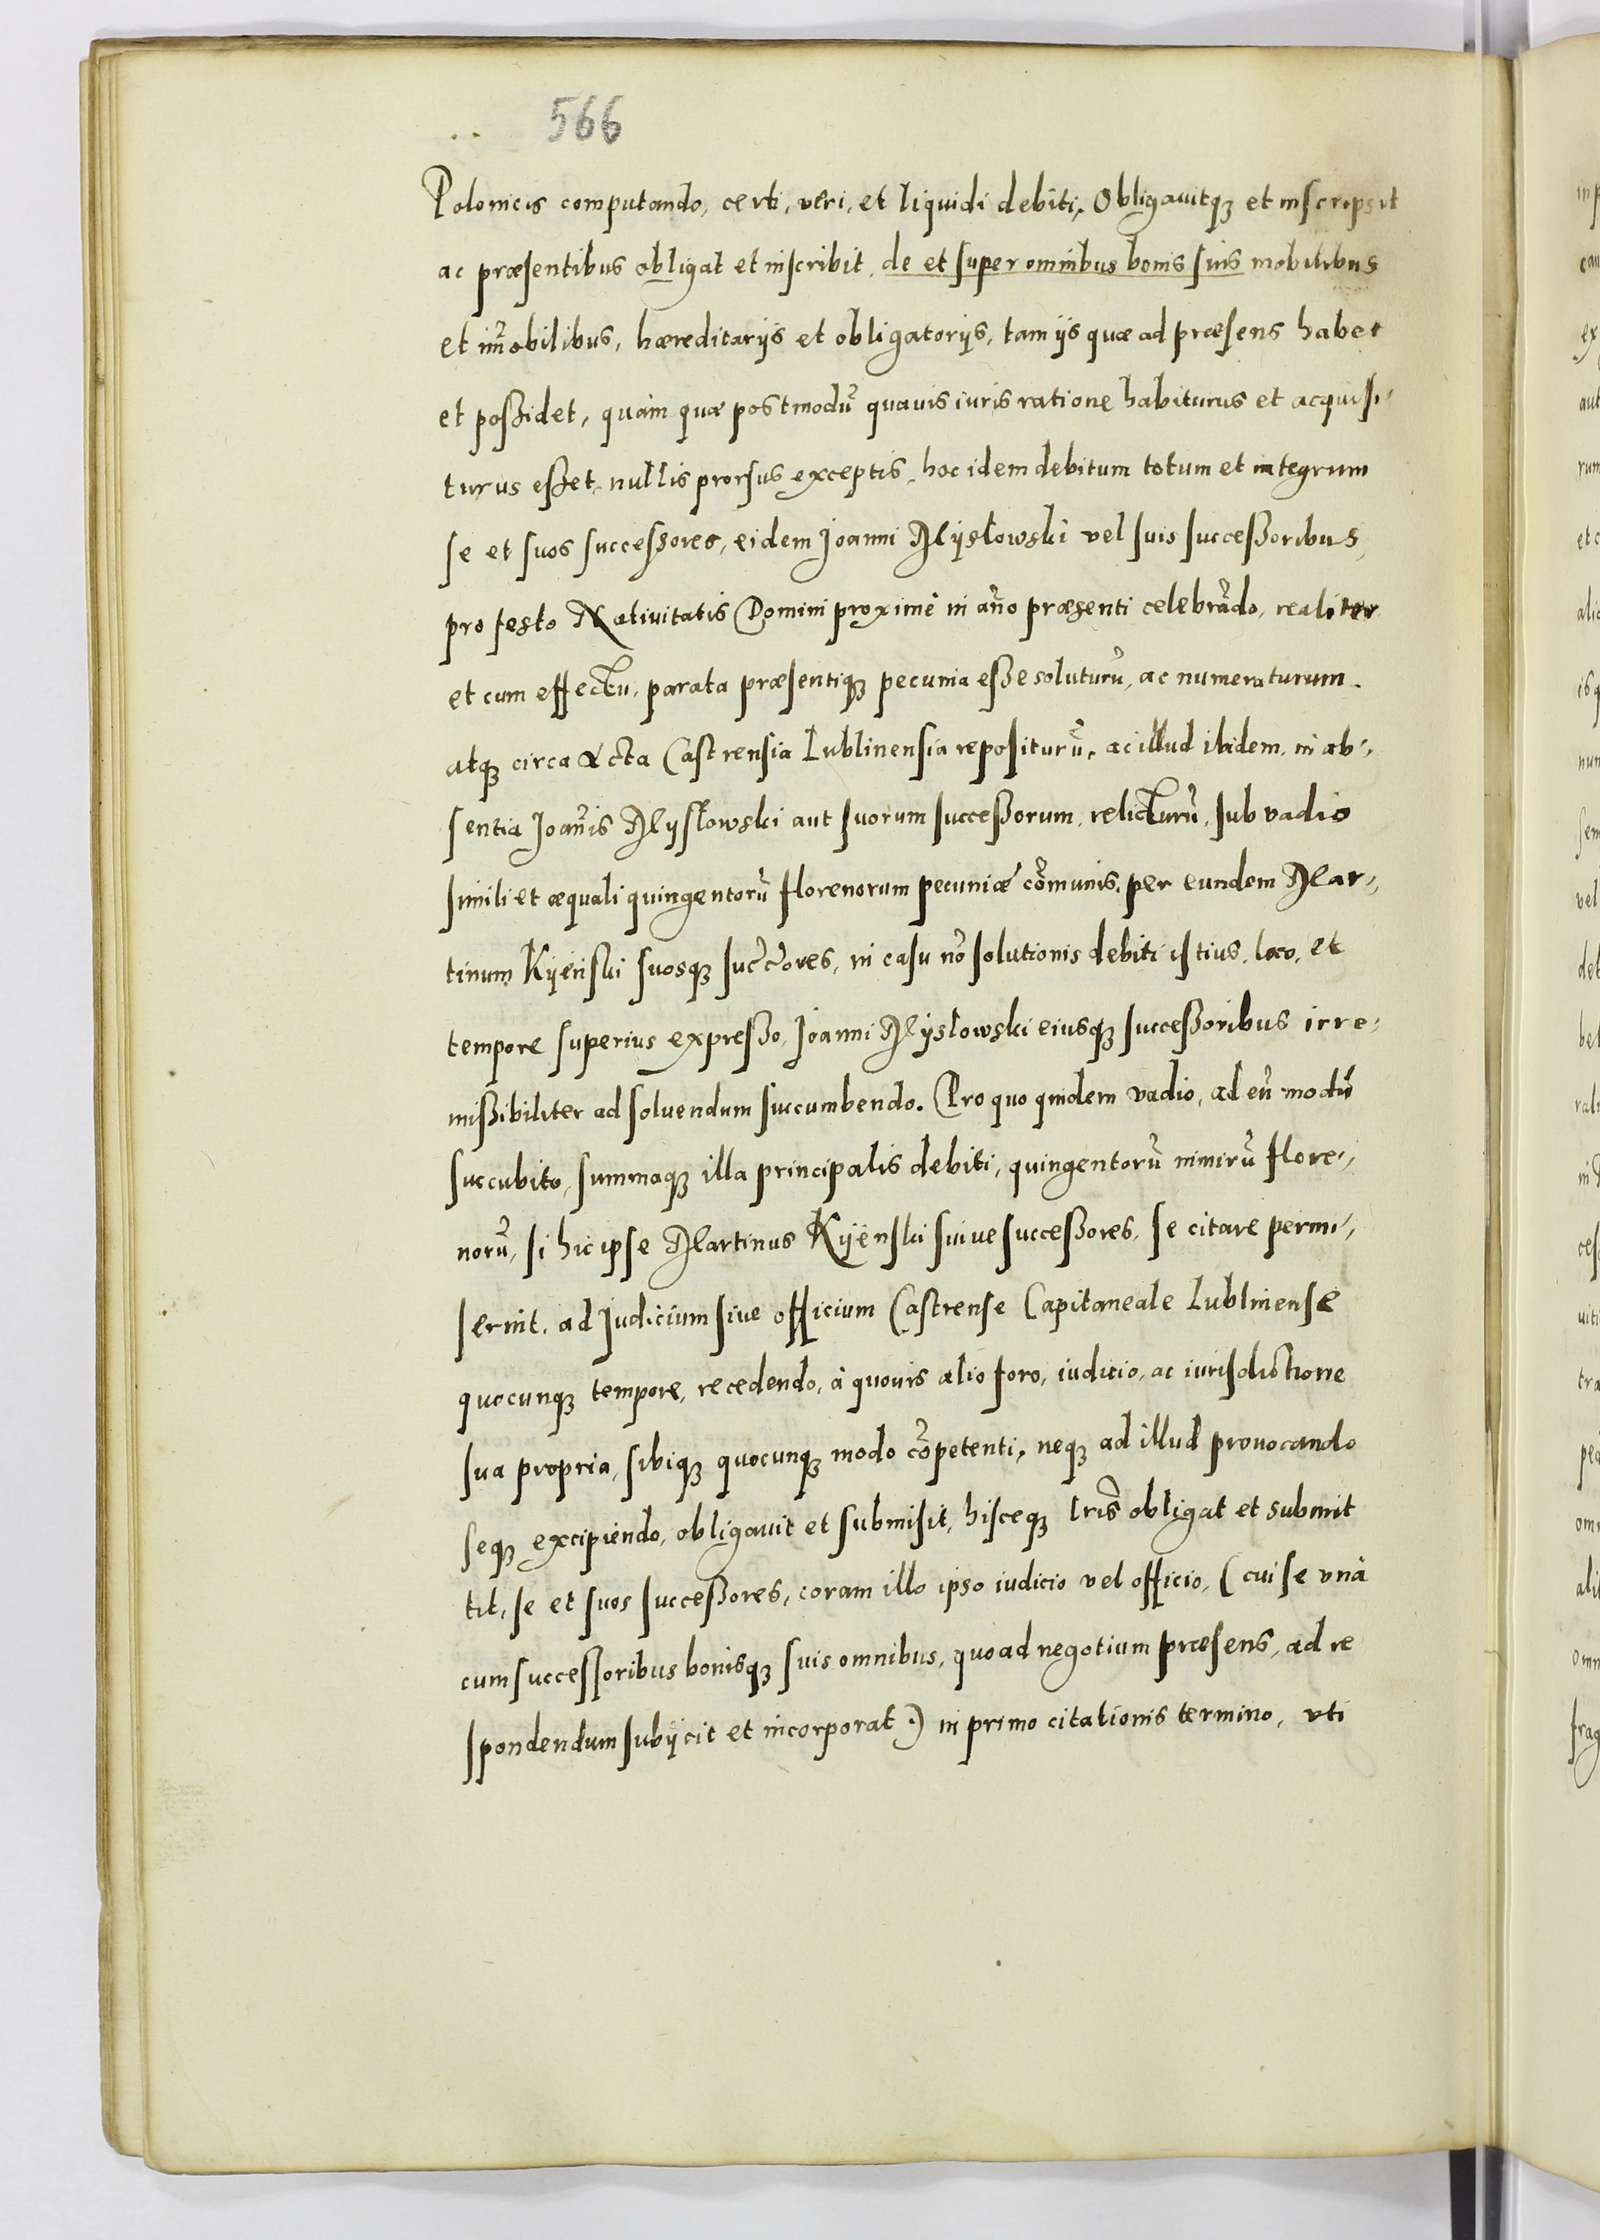 566
Polonicis computando, certi, veri, et liquidi debiti, Obligauitqȝ et inscripsit
ac præsentibus obligat et inscribit, de et super omnibus bonis suis mobilibus
et im̃obilibus, hæreditarijs et obligatorijs, tam ijs quæ ad præsens habet
et poßidet, quàm quæ postmodũ quauis iuris ratione habiturus et acquisi-
turus eßet, nullis prorsus exceptis, hoc idem debitum totum et integrum
se et suos succeßores, eidem Joanni Mysłowski vel suis succeßoribus
pro festo Natiuitatis Domini proximè in año præsenti celebrãdo, realiter
et cum effectu, parata præsentiqȝ pecunia eße soluturũ, ac numeraturum.
atqȝ circa Acta Castrensia Lublinensia repositurũ, ac illud ibidem, in ab-
sentia Joañis Mysłowski aut suorum succeßorum, relicturũ, sub vadio
simili et æquali quingentorũ florenorum pecuniæ cõmunis, per eundem Mar-
tinum Kijenski suosqȝ succ̃ores, in casu nõ solutionis debiti istius, loco, et
tempore superius expreßo, Joanni Mysłowski eiusqȝ succeßoribus irre-
mißibiliter ad soluendum succumbendo. Pro quo quidem vadio, ad eũ modũ
succubito, summaqȝ illa principalis debiti, quingentorũ nimirũ flore-
norũ, si hic ipse Martinus Kijenski suiue succeßores, se citare permi-
serint, ad Judicium siue officium Castrense Capitaneale Lublinense
quocunqȝ tempore, recedendo, à quouis alio foro, iudicio, ac iurisdictione
sua propria, sibiqȝ quocunqȝ modo cõpetenti, neqȝ ad illud prouocando
seqȝ excipiendo, obligauit et submisit, hisceqȝ lr̃is obligat et submit
tit, se et suos succeßores, coram illo ipso iudicio vel officio, (cui se vnà
cum successoribus bonisqȝ suis omnibus, quoad negotium præsens, ad re
spondendum subijcit et incorporat) in primo citationis termino, vti